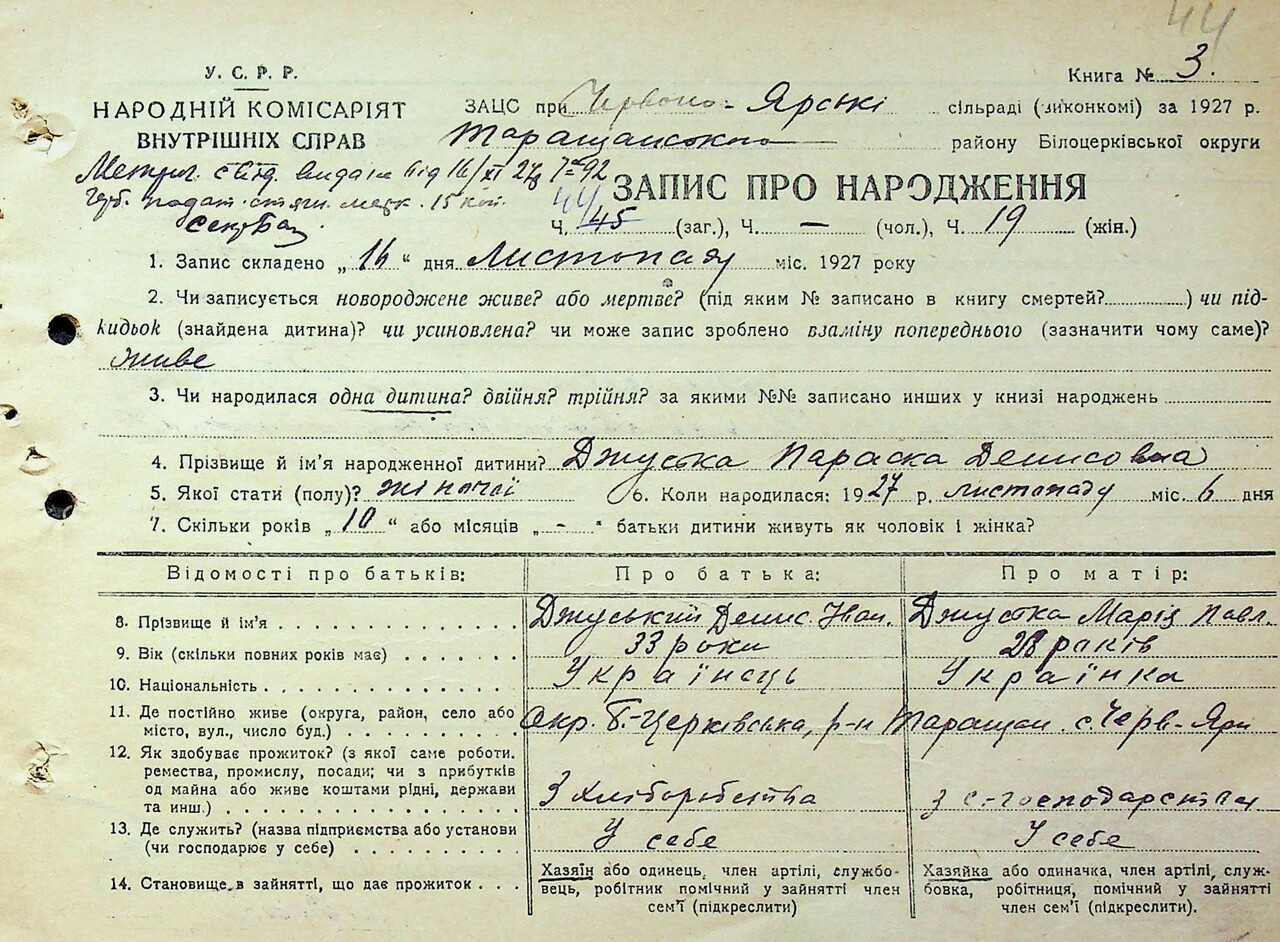 44
У. С. Р. Р.
Книга № 3.
НАРОДНІЙ КОМІСАРІЯТ
ВНУТРІШНІХ СПРАВ
ЗАЦС при Червоно-Ярські сільраді (виконкомі) за 1927 р.
Таращанського району Білоцерківської округи
Метрич. свід. видана від 16/XI 27р № 92
подат. стягн. 15 коп.
44
ЗАПИС ПРО НАРОДЖЕННЯ
Ч. 45 (заг.), Ч. — (чол.), Ч. 19 (жін.)
1. Запис складено „ 16 “ дня Листопаду міс. 1927 року
2. Чи записується новороджене живе? або мертве? (під яким № записано в книгу смертей? ) чи під-
кидьок (знайдена дитина)? чи усиновлена? чи може запис зроблено взаміну попереднього (зазначити чому саме)?
живе
3. Чи народилася одна дитина? двійня? трійня? за якими №№ записано инших у книзі народжень
4. Прізвище й ім’я народженної дитини? Джуська Параска Денисовна
5. Якої стати (полу)? жіночої 6. Коли народилася: 1927 р. листопаду міс. 6 дня
7. Скільки років „ 10 “ або місяців „ - “ батьки дитини живуть як чоловік і жінка?
Відомості про батьків: Про батька: Про матір:
8. Прізвище й ім’я Джуський Денис Джуська Марія Павл.
9. Вік (скільки повних років має) 33 роки 28 років
10. Національність Українець Українка
11. Де постійно живе (округа, район, село або
місто, вул., число буд.) Окр. Б-Церківська, р-н Таращан. с. Черв-Яри
12. Як здобуває прожиток? (з якої саме роботи.
ремества, промислу, посади; чи з прибутків
од майна або живе коштами рідні, держави
та инш.) З хліборобства з с-господарства
13. Де служить? (назва підприємства або установи
(чи господарює у себе) У себе У себе
14. Становище в зайнятті, що дає прожиток
Хазяїн або одинець, член артілі, службо-
вець, робітник помічний у зайнятті член
сем’ї (підкреслити)
Хазяйка або одиначка, член артілі, служ-
бовка, робітниця, помічний у зайнятті
член сем’ї (підкреслити).